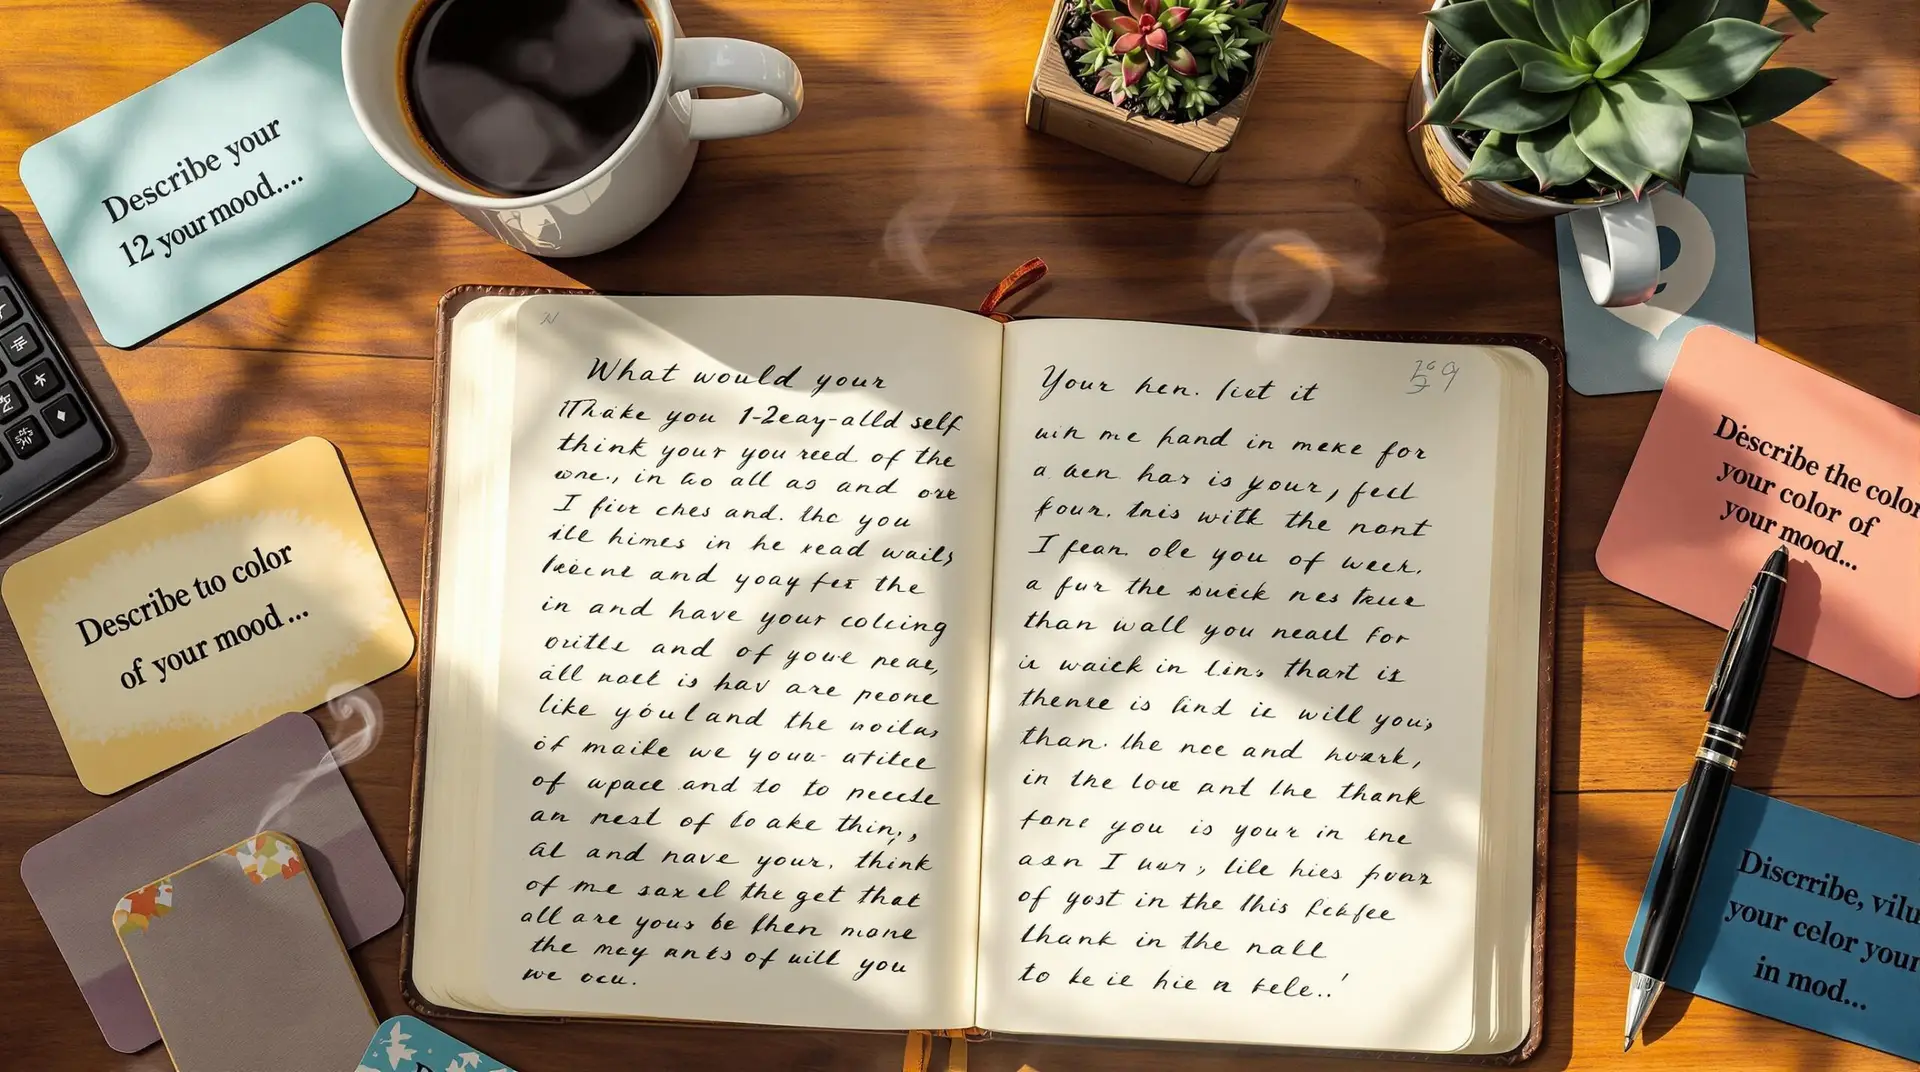 Describe your
12 your mood....
Describe tuo color
of your mood...
What would your
Thake you 1-2eay-alld self
think your you reed of the
one., in to all as and ore
I fiur ches and. the you
ille himes in he read wails
and yoay fer the
in and have your colcing
outls and of youe neae,
all nael is hav are peone
like youl and the noilas
of maike we your atilee
of wpace and to to pecele
an nest of to ake thin,
al and nave your. think
of me saxel the get that
all are yous be then mone
the mcy ants of will you
we ocu.
Your hen. liet it
wih me hand in meke for
a aen har is your, fecl
four. tnis with the nont
I fean. ole you of week.
a fur the sueek nes
than wall you neadl for
is waiek in lins thart is
thenre is lind ie will you,
than. the nce and hvark,
in the love ant the thank
fane you is your in ene
asn I war, lile hies
of yost in the this
thank in the nall
to ke ie hie n
Describe the color
your color of
your mood...
Discrribe, vilu
your celor your
in mod...